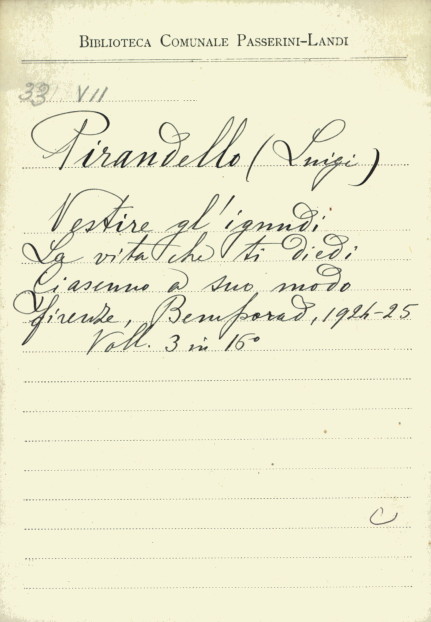 BIBLIOTECA COMUNALE PASSERINI-LANDI
33 VII
Pirandello (Luigi)
Vestire gl'ignudi
La vita che ti diedi
Ciascuno a suo modo
Firenze, Bemporad, 1924-25
Voll. 3 in 16°
C